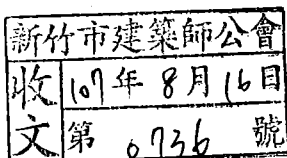 新竹市建築師公會
收文
107年8月16日
第0736號